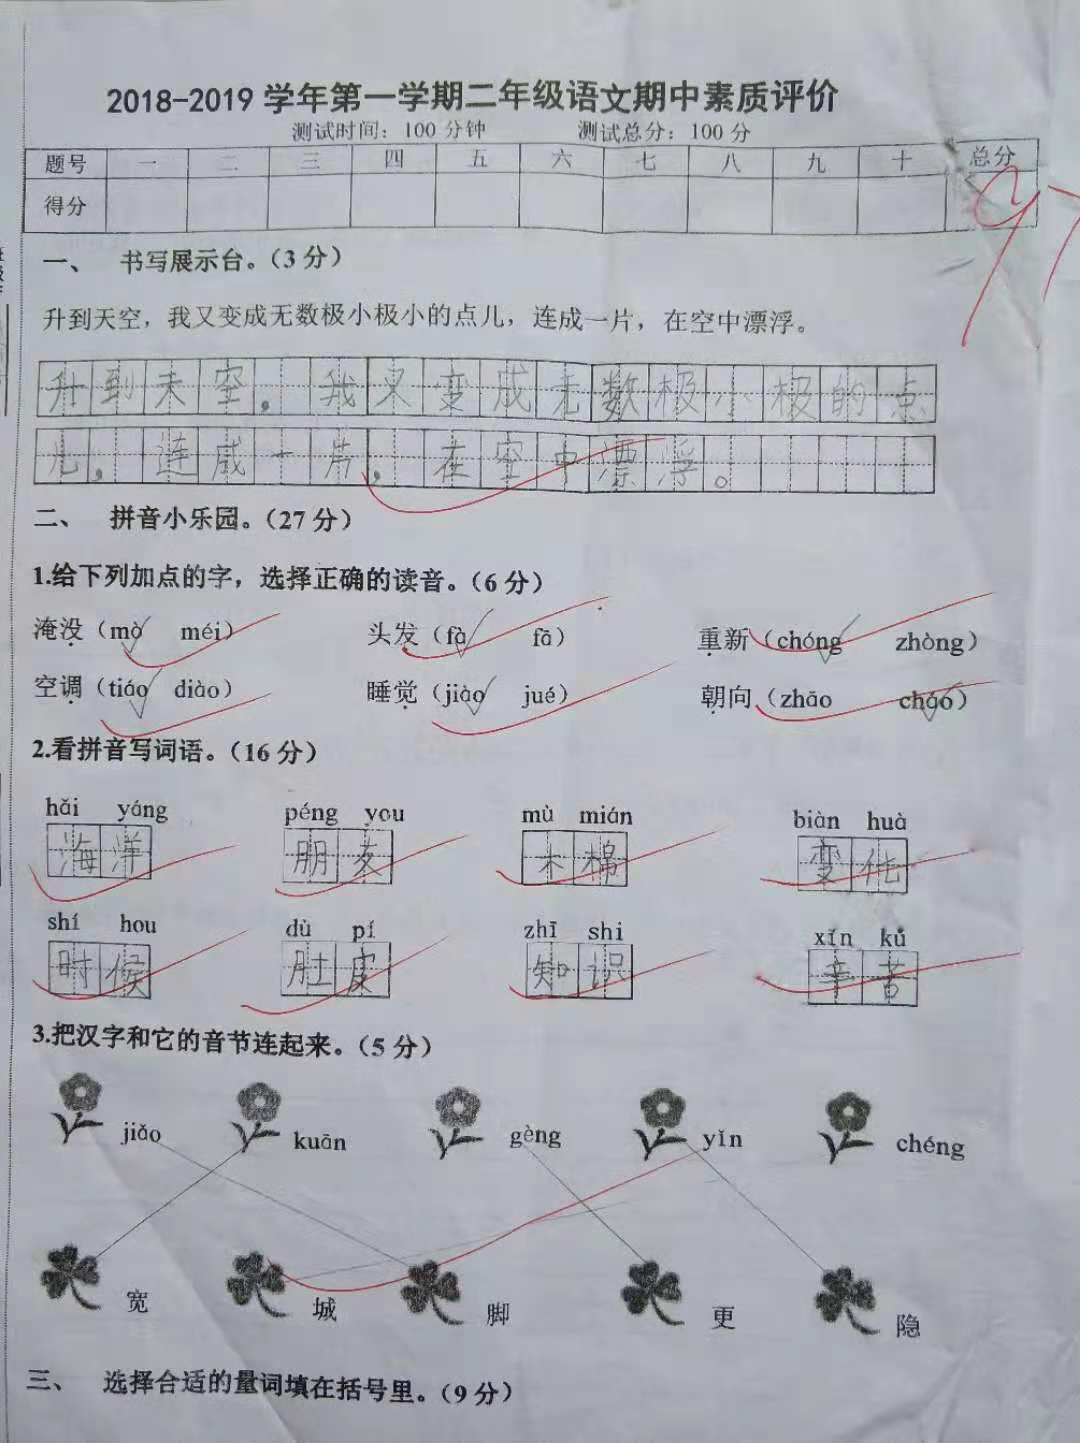 2018-2019 学年第一学期二年级语文期中素质评价
测试时间：100 分钟 测试总分：100 分
题号 一 二 三 四 五 六 七 八 九 十 总分
得分 97
一、 书写展示台。（3 分）
升到天空，我又变成无数极小极小的点儿，连成一片，在空中漂浮。
升到天空，我又变成无数极小极的点
儿，连成一片，在空中漂浮。
二、 拼音小乐园。（27 分）
1.给下列加点的字，选择正确的读音。（6 分）
淹没（mò méi） 头发（fà fā） 重新（chóng zhòng）
空调（tiáo diào） 睡觉（jiào jué） 朝向（zhāo cháo）
2.看拼音写词语。（16 分）
hǎi yáng péng you mù mián biàn huà
海洋 朋友 木棉 变化
shí hou dù pí zhī shi xīn kǔ
时候 肚皮 知识 辛苦
3.把汉字和它的音节连起来。（5 分）
jiǎo kuān gèng yǐn chéng
宽 城 脚 更 隐
三、 选择合适的量词填在括号里。（9 分）